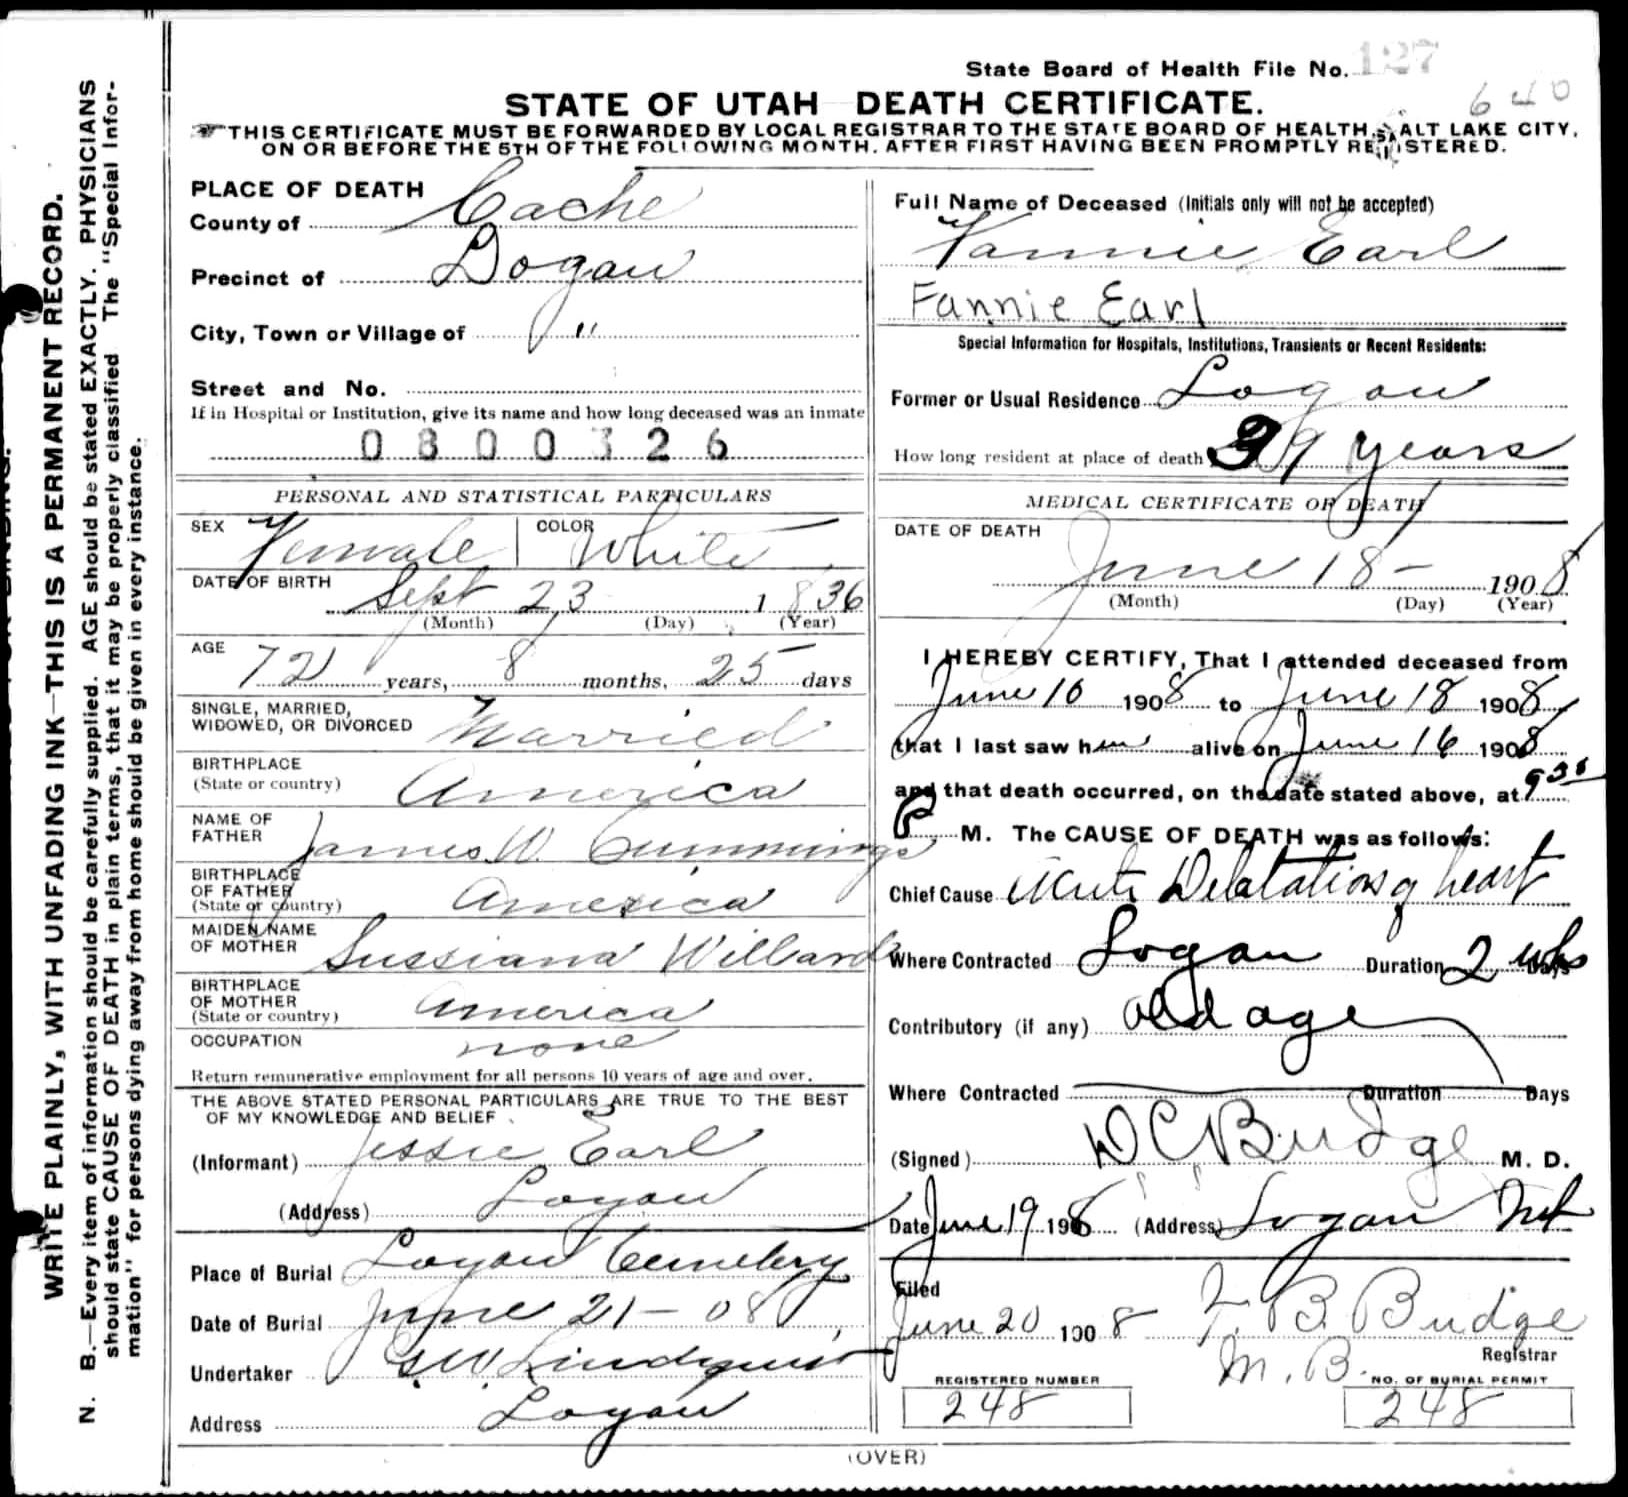 State Board of Health File No. 127
640
STATE OF UTAH DEATH CERTIFICATE.
THIS CERTIFICATE MUST BE FORWARDED BY LOCAL REGISTRAR TO THE STATE BOARD OF HEALTH, SALT LAKE CITY,
ON OR BEFORE THE 5TH OF THE FOLLOWING MONTH. AFTER FIRST HAVING BEEN PROMPTLY REGISTERED.
WRITE PLAINLY, WITH UNFADING INK—THIS IS A PERMANENT RECORD.
N. B.—Every item of information should be carefully supplied. AGE should be stated EXACTLY. PHYSICIANS
should state CAUSE OF DEATH in plain terms, that it may be properly classified The "Special Infor-
mation" for persons dying away from home should be given in every instance.
PLACE OF DEATH
County of Cache
Precinct of Logan
City, Town or Village of "
Street and No.
If in Hospital or Institution, give its name and how long deceased was an inmate
0800326
PERSONAL AND STATISTICAL PARTICULARS
SEX Female COLOR White
DATE OF BIRTH
Sept 23 1836
(Month) (Day) (Year)
AGE
72 years, 8 months, 25 days
SINGLE, MARRIED,
WIDOWED, OR DIVORCED Married
BIRTHPLACE
(State or country) America
NAME OF
FATHER James W. Cummings
BIRTHPLACE
OF FATHER
(State or country) America
MAIDEN NAME
OF MOTHER Sussiana Willard
BIRTHPLACE
OF MOTHER
(State or country) America
OCCUPATION none
Return remunerative employment for all persons 10 years of age and over.
THE ABOVE STATED PERSONAL PARTICULARS ARE TRUE TO THE BEST
OF MY KNOWLEDGE AND BELIEF
(Informant) Jessie Earl
(Address) Logan
Place of Burial Logan Cemetery
Date of Burial June 21-08
Undertaker G W Lindquist
Address Logan
Full Name of Deceased (Initials only will not be accepted)
Fannie Earl
Fannie Earl
Special Information for Hospitals, Institutions, Transients or Recent Residents:
Former or Usual Residence Logan
How long resident at place of death 39 years
MEDICAL CERTIFICATE OF DEATH
DATE OF DEATH
June 18- 1908
(Month) (Day) (Year)
I HEREBY CERTIFY, That I attended deceased from
June 16 1908 to June 18 1908
that I last saw her alive on June 16 1908
and that death occurred, on the date stated above, at 9 35
P M. The CAUSE OF DEATH was as follows:
Chief Cause Acute Delatation of heart
Where Contracted Logan Duration 2 wks Days
Contributory (if any) old age
Where Contracted Duration Days
(Signed) D C Budge M. D.
Date June 19 1908 (Address) Logan Ut
Filed
June 20 1908 T. B. Budge
Registrar
M. B.
REGISTERED NUMBER
248
NO. OF BURIAL PERMIT
248
(OVER)